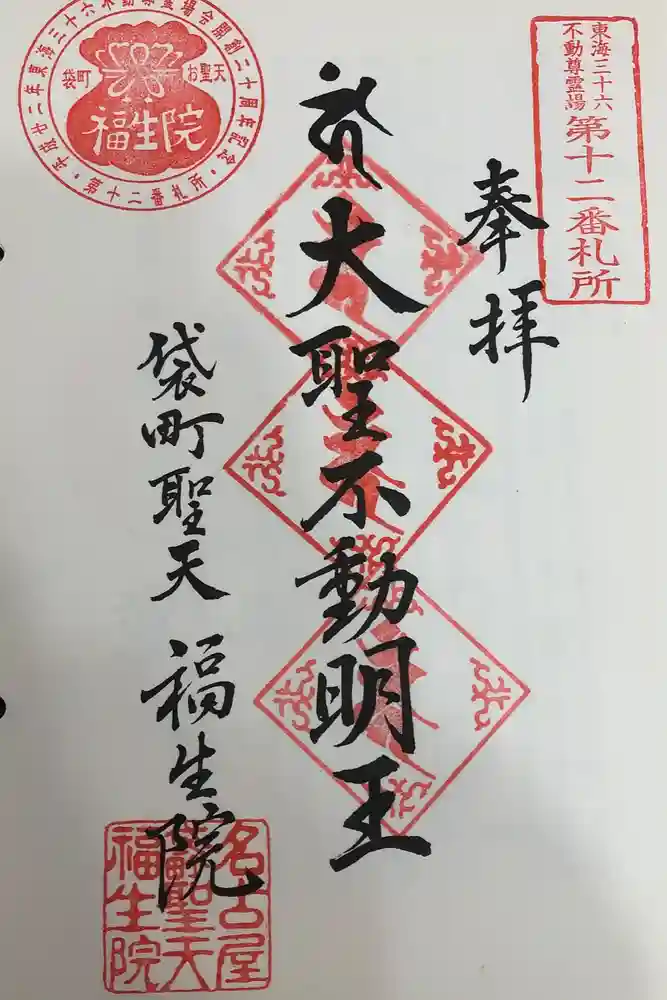 東海三十六
不動尊霊場
第十二番札所
奉拝
大聖不動明王
袋町聖天 福生院
平成廿二年東海三十六不動尊霊場会開創二十周年記念・第十二番札所・
袋町 お聖天
福生院
名古屋
聖天
福生院